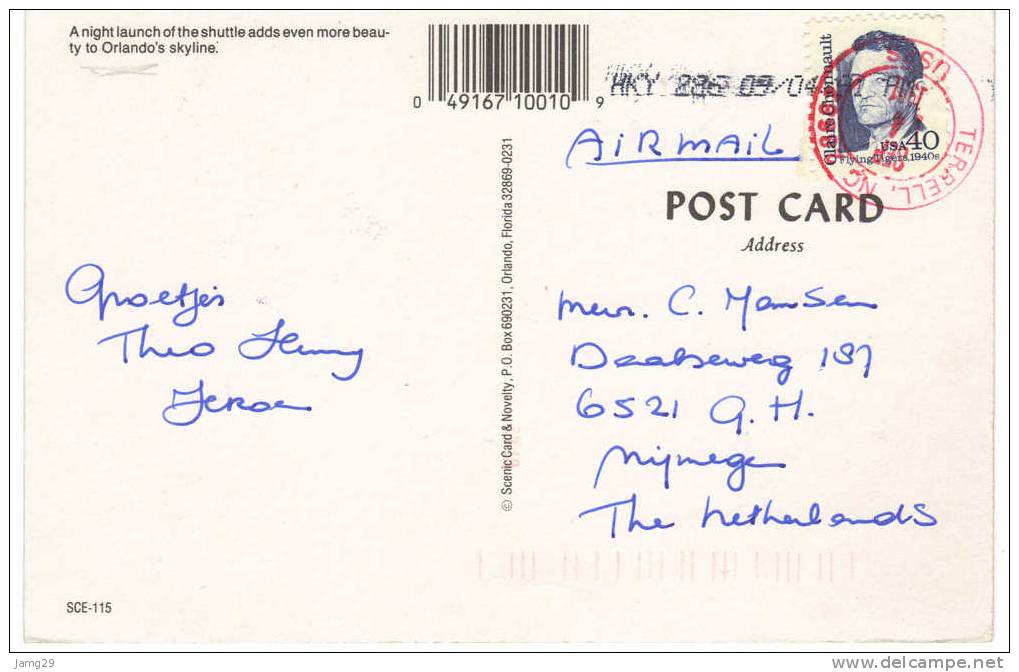 A night launch of the shuttle adds even more beau-
ty to Orlando's skyline.
0 49167 10010 9
HKY 286 09/04
AiRMAiL
Claire Chennault
USA 40
Flying Tigers, 1940s
TERRELL, NC
USPS
POST CARD
Address
Groetjes
Theo Henny
Jeroen
Mevr. C. Hansen
Daalseweg 187
6521 G.H.
Nijmegen
The Netherlands
© Scenic Card & Novelty, P.O. Box 690231, Orlando, Florida 32869-0231
SCE-115
Jamg29
www.delcampe.net